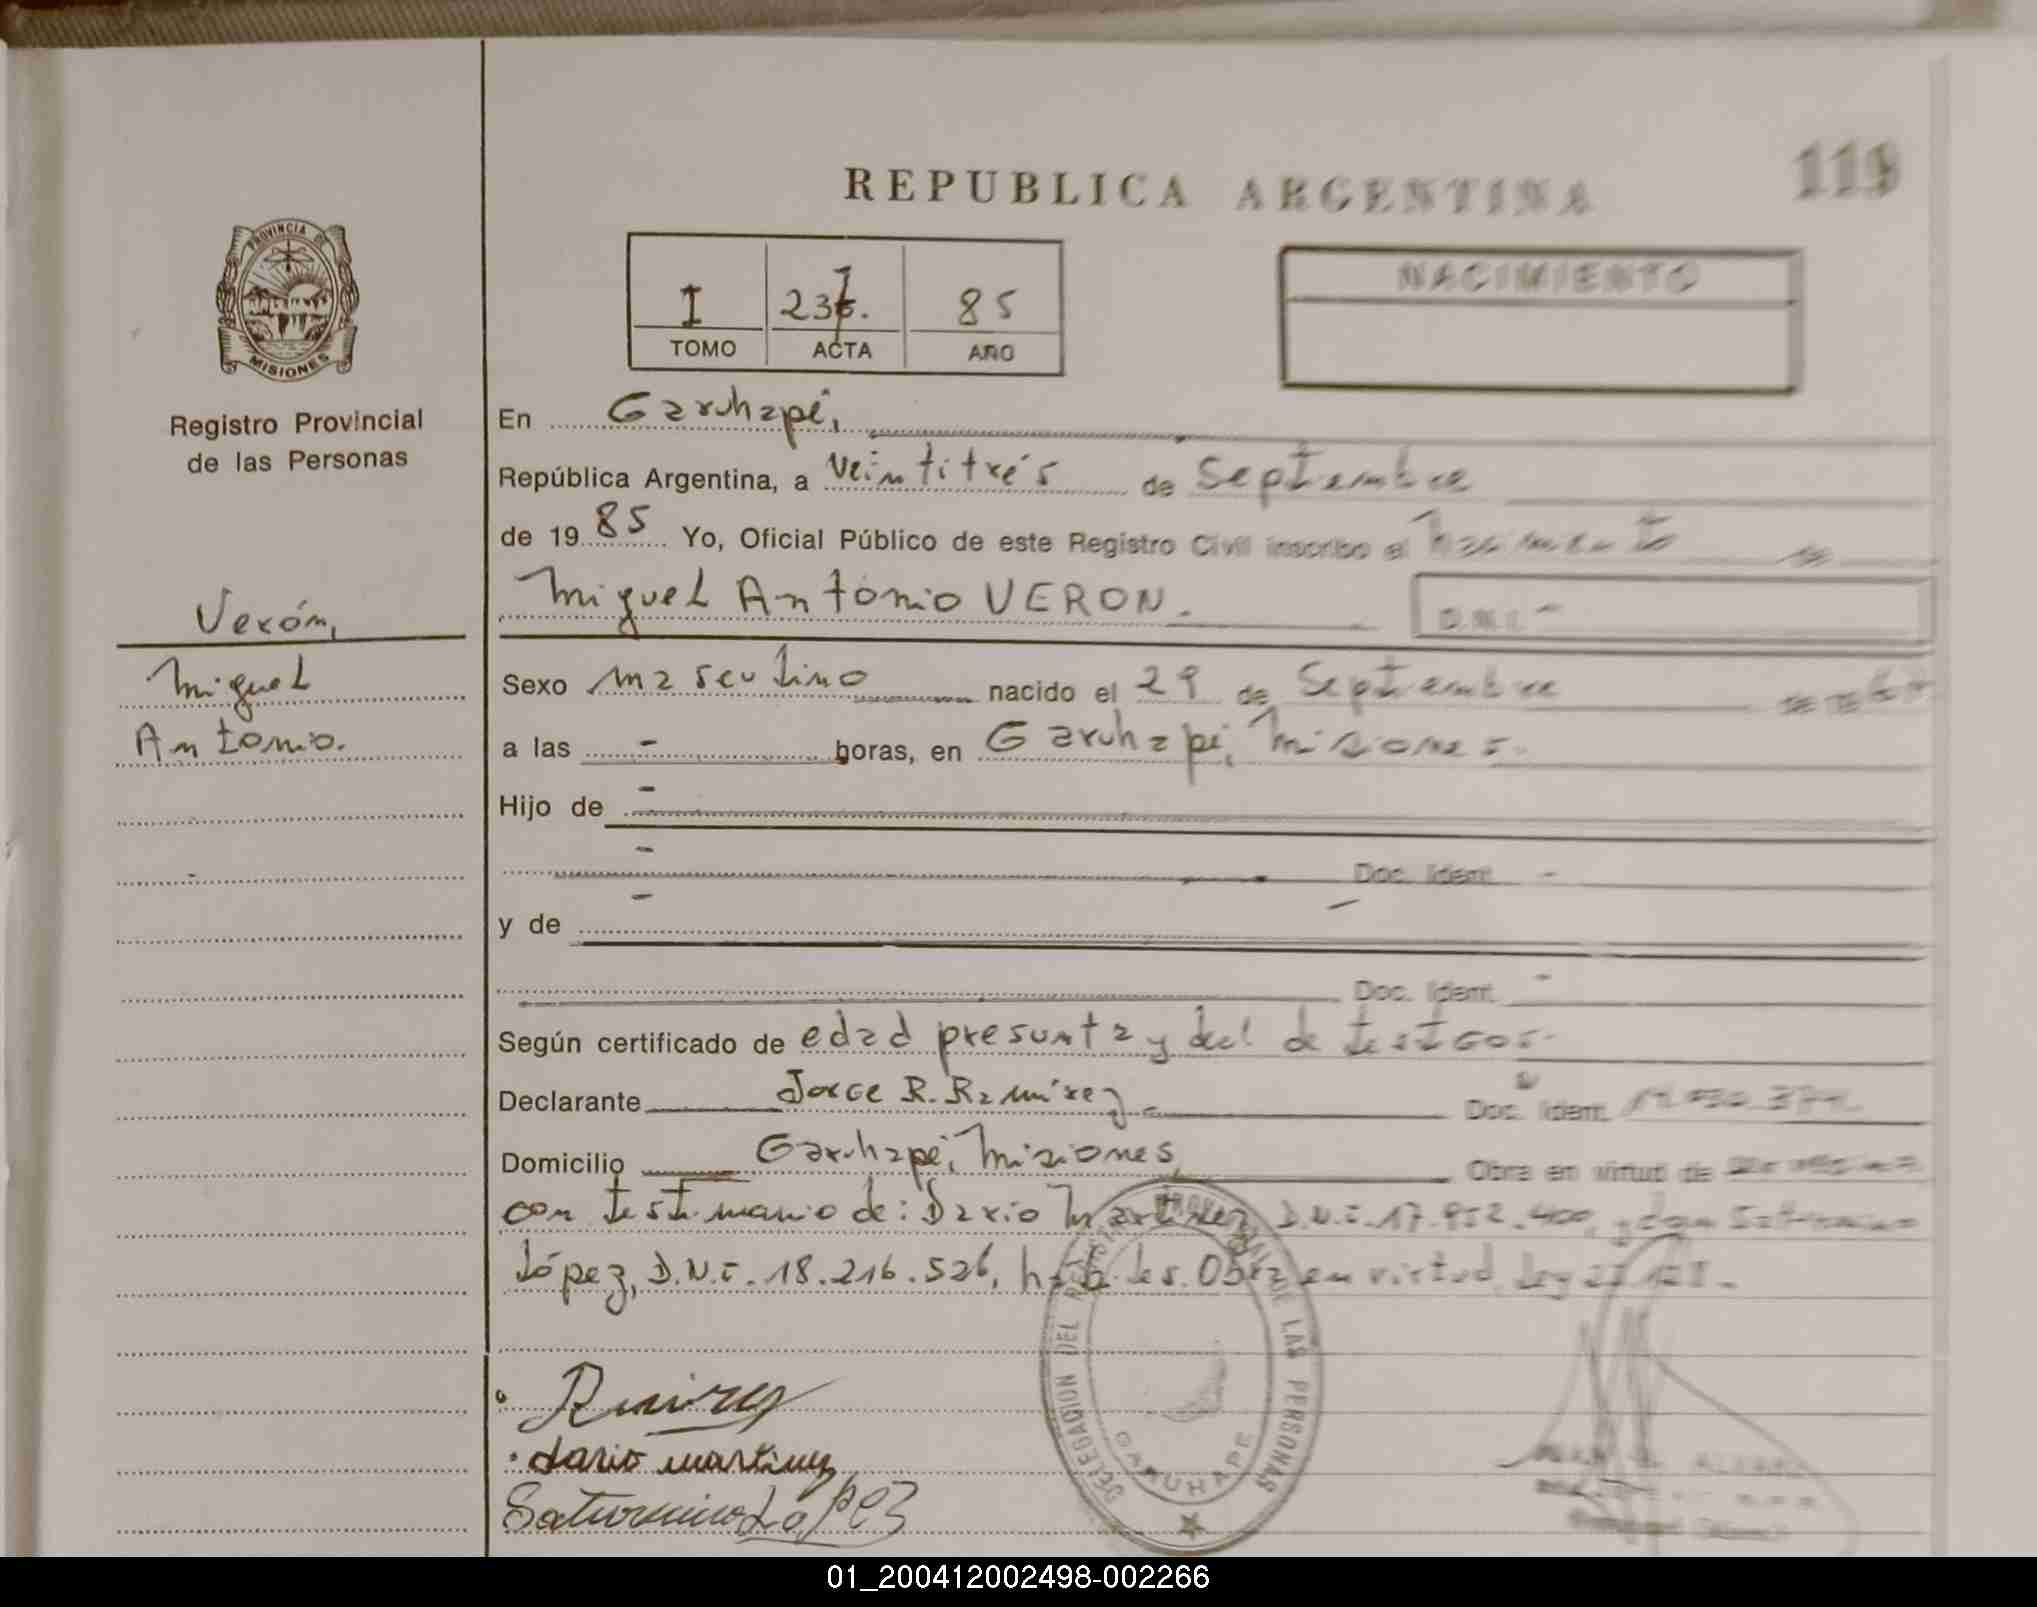 119
REPUBLICA ARGENTINA
PROVINCIA DE
MISIONES
Registro Provincial
de las Personas
I 237. 85
TOMO ACTA AÑO
NACIMIENTO
En Garuhapé,
República Argentina, a veintitrés de Septiembre
de 1985 Yo, Oficial Público de este Registro Civil inscribo el nacimiento de
Miguel Antonio VERON. D.N.I. -
Verón,
Miguel
Antonio.
Sexo masculino nacido el 29 de Septiembre
a las - horas, en Garuhapé, Misiones.
Hijo de -
- Doc. Ident. -
y de -
Doc. Ident. -
Según certificado de edad presunta y decl de testigos.
Declarante Jorge R. Ramírez Doc. Ident.
Domicilio Garuhapé, Misiones, Obra en virtud de
con testimonio de: Dario Martinez D.N.I. 17.952.400, y don Saturnino
López, D.N.I. 18.216.526, hábiles. Obra en virtud Ley
DELEGACION DEL REGISTRO PROVINCIAL DE LAS PERSONAS
GARUHAPE
Ramirez
dario martinez
Saturnino LoPeZ
01_200412002498-002266